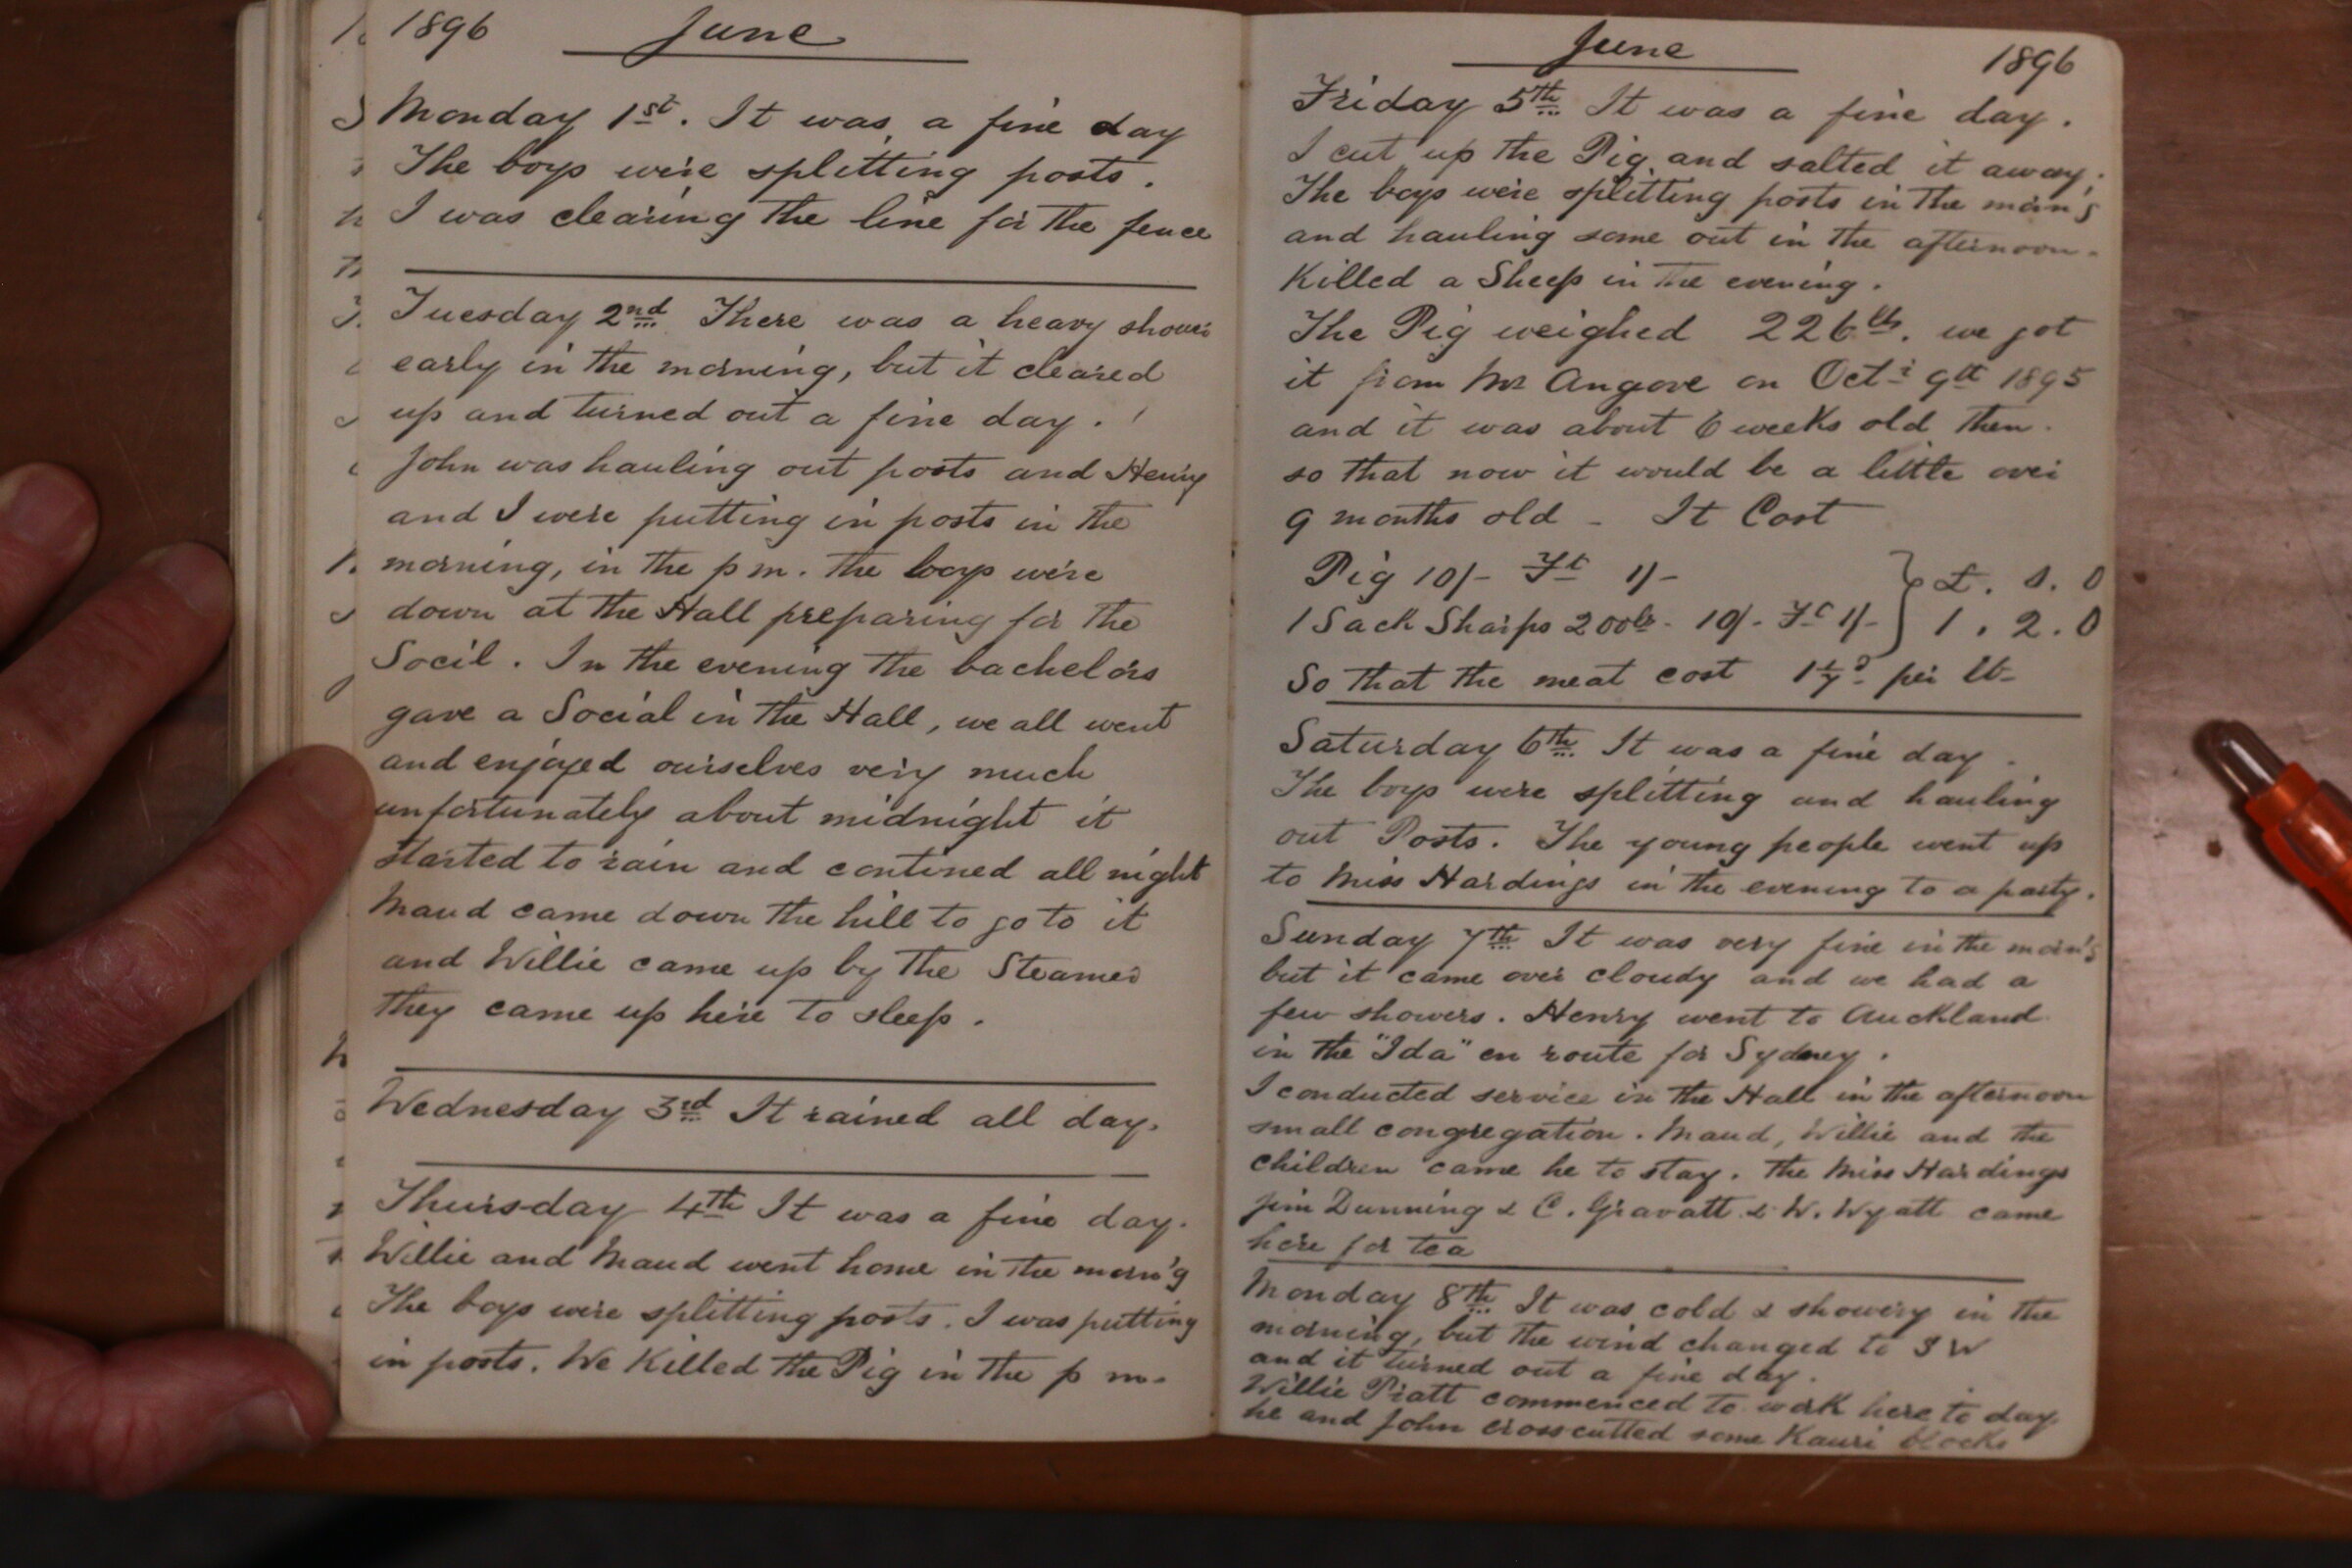 1896 June
Monday 1st. It was a fine day
The boys were splitting posts.
I was clearing the line for the fence
Tuesday 2nd There was a heavy shower
early in the morning, but it cleared
up and turned out a fine day.
John was hauling out posts and Henry
and I were putting in posts in the
morning, in the p m. the boys were
down at the Hall preparing for the
Socil. In the evening the bachelors
gave a Social in the Hall, we all went
and enjoyed ourselves very much
unfortunately about midnight it
started to rain and contined all night
Maud came down the hill to go to it
and Willie came up by the Steamer
they came up here to sleep.
Wednesday 3rd It rained all day.
Thursday 4th It was a fine day.
Willie and Maud went home in the morn'g
The boys were splitting posts. I was putting
in posts. We Killed the Pig in the p m.
June 1896
Friday 5th It was a fine day.
I cut up the Pig and salted it away.
The boys were splitting posts in the morn'g
and hauling some out in the afternoon.
Killed a Sheep in the evening.
The Pig weighed 226 lb. we got
it from Mr Angove on Octr 9th 1895
and it was about 6 weeks old then.
so that now it would be a little over
9 months old - It Cost
Pig 10/- Ft 1/- } £. s. D
1 Sack Sharps 200lb - 10/- Ft 1/- } 1. 2. 0
So that the meat cost 1 1/7 d per lb-
Saturday 6th It was a fine day.
The boys were splitting and hauling
out Posts. The young people went up
to Miss Hardings in the evening to a party.
Sunday 7th It was very fine in the morn'g
but it came over cloudy and we had a
few showers. Henry went to Auckland
in the "Ida" en route for Sydney.
I conducted service in the Hall in the afternoon
small congregation. Maud, Willie and the
children came he to stay. The Miss Hardings
Jim Dunning & C. Gravatt & W. Wyatt came
here for tea
Monday 8th It was cold & showery in the
morning, but the wind changed to S W
and it turned out a fine day.
Willie Pratt commenced to work here to day
he and John crosscutted some Kauri blocks